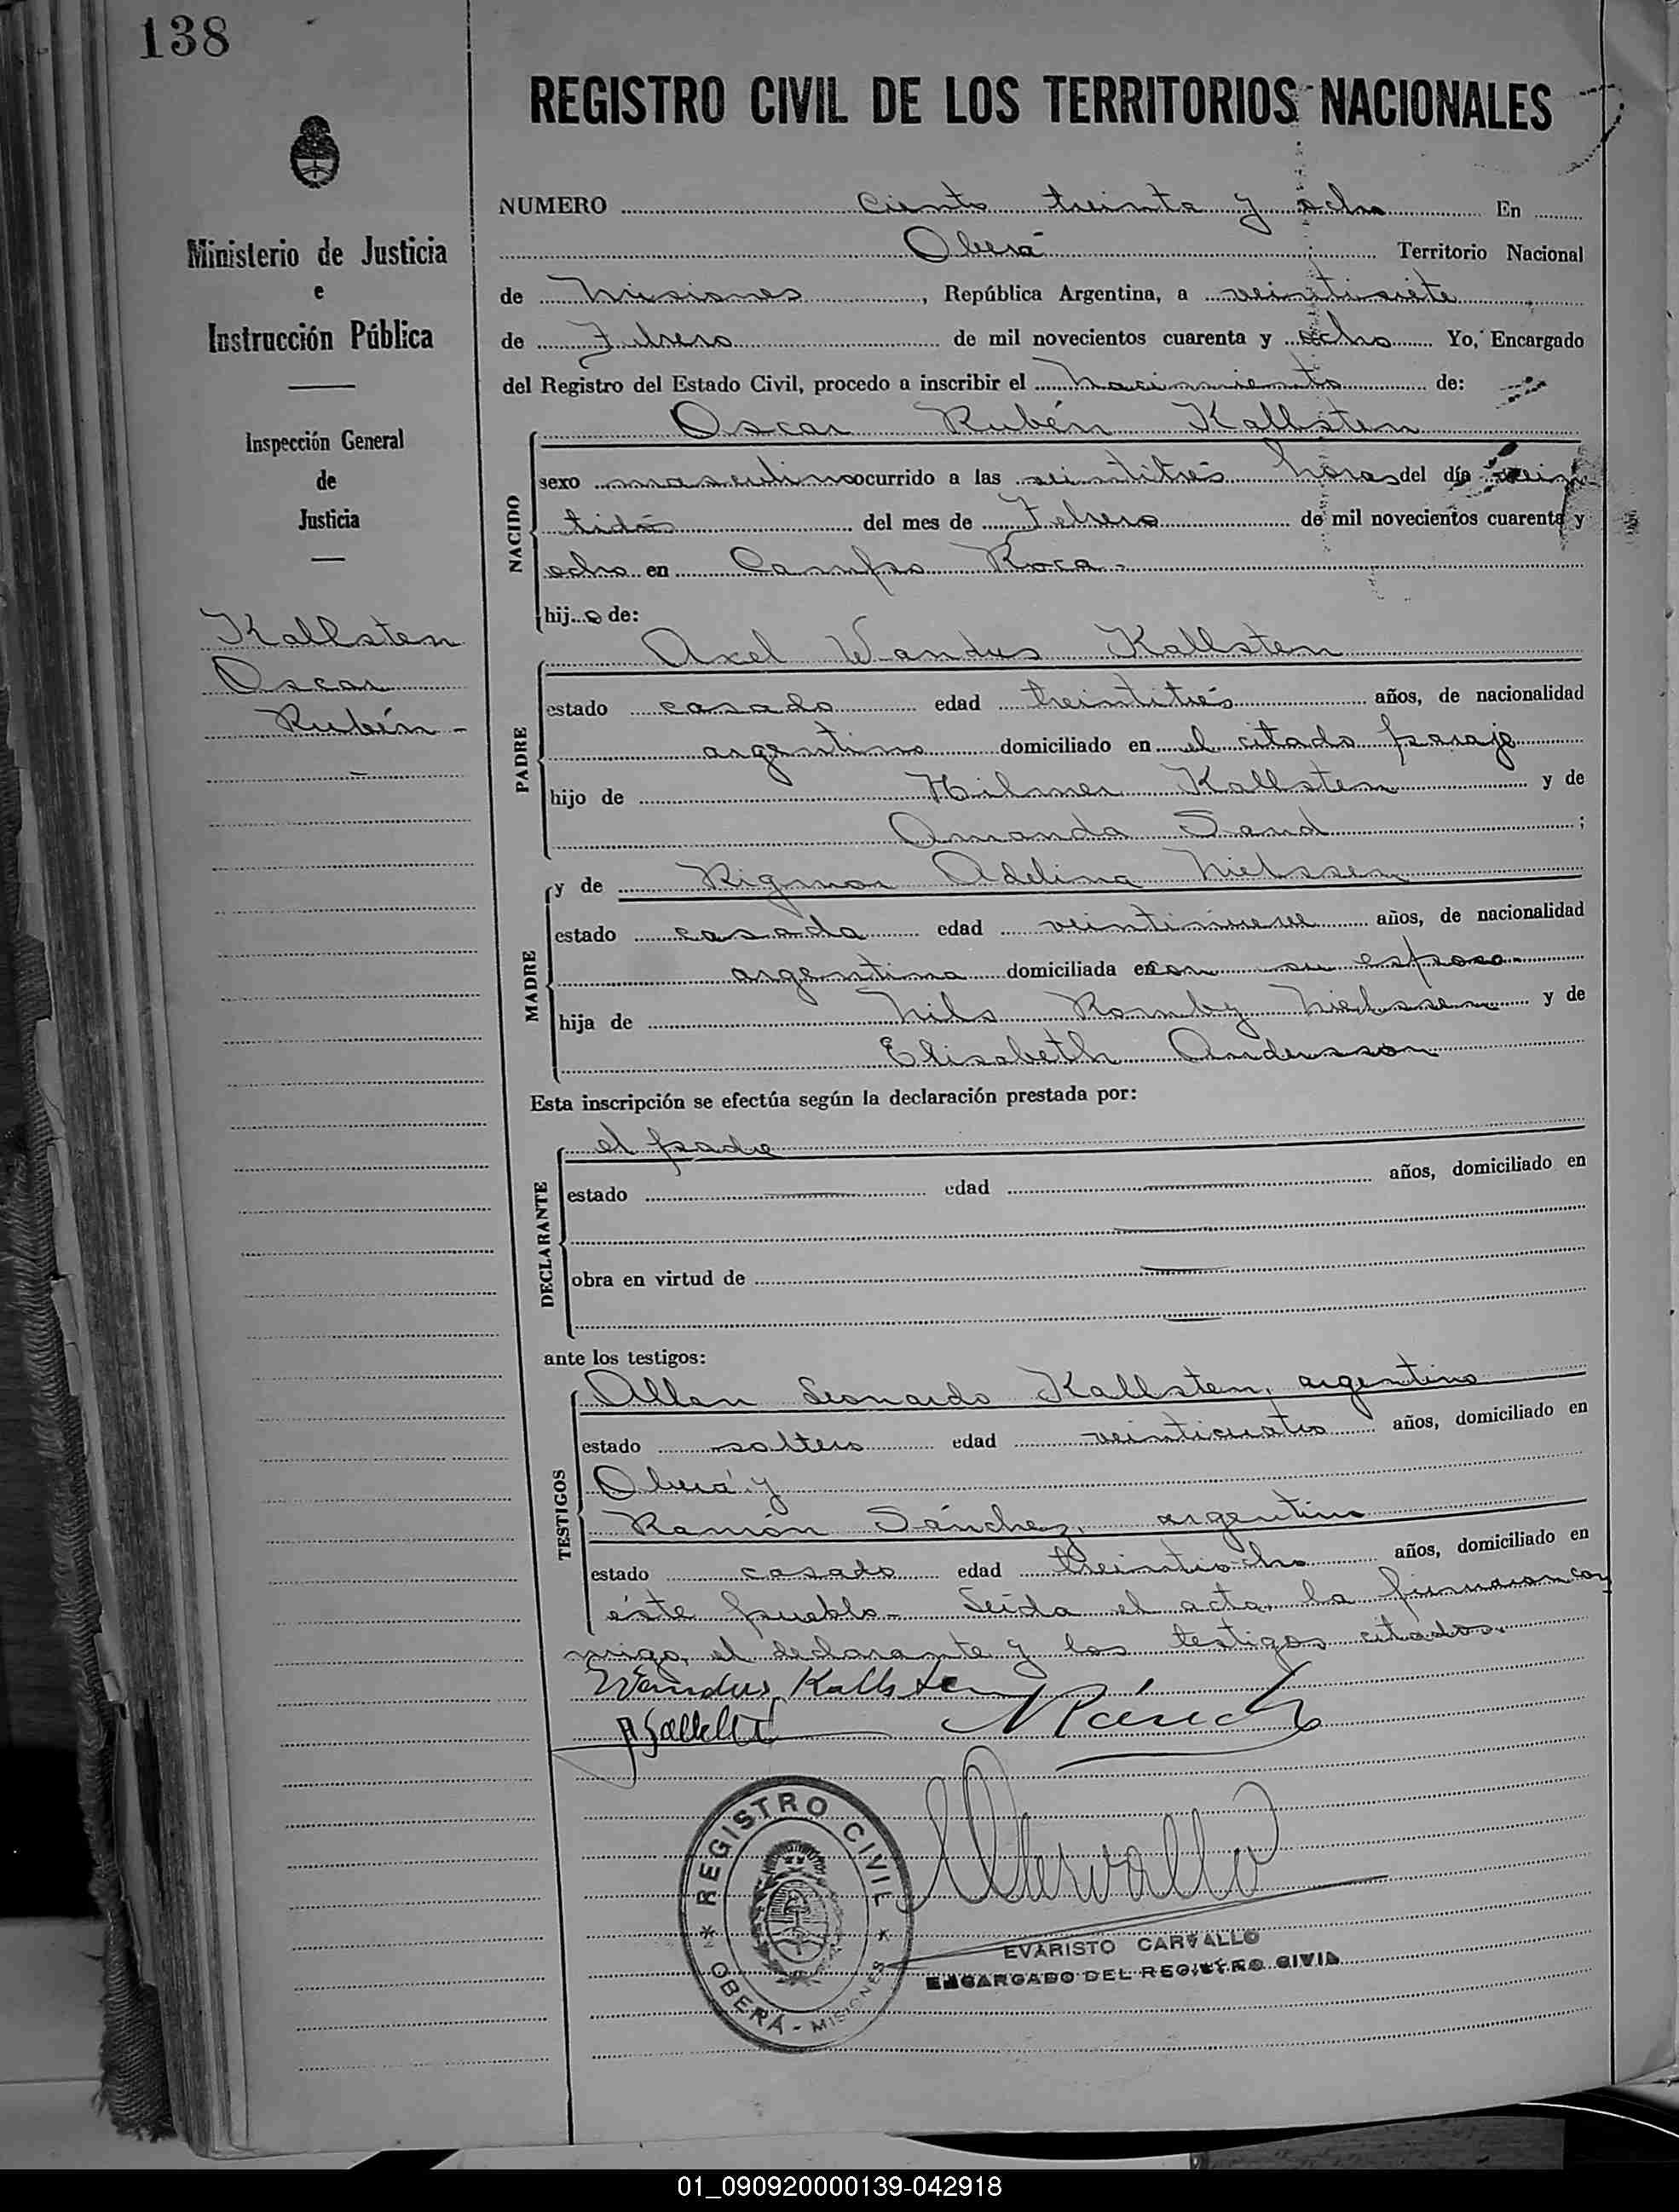 138
REGISTRO CIVIL DE LOS TERRITORIOS NACIONALES
Ministerio de Justicia
e
Instrucción Pública
Inspección General
de
Justicia
Kallsten
Oscar
Rubén -
NUMERO ciento treinta y ocho En
Oberá Territorio Nacional
de Misiones, República Argentina, a veintisiete
de Febrero de mil novecientos cuarenta y ocho Yo, Encargado
del Registro del Estado Civil, procedo a inscribir el nacimiento de:
NACIDO
Oscar Rubén Kallsten
sexo masculino ocurrido a las veintitrés horas del día vein
tidós del mes de Febrero de mil novecientos cuarenta y
ocho en Campo Roca.-
hijo de:
PADRE
Axel Wandus Kallsten
estado casado edad treintitrés años, de nacionalidad
argentino domiciliado en el citado paraje
hijo de Hilmer Kallsten y de
Amanda Sand ;
MADRE
y de Rigmor Adelina Nielssen
estado casada edad veintinueve años, de nacionalidad
argentina domiciliada en con su esposo.-
hija de Nils Romby Nielssen y de
Elisabeth Andersson
Esta inscripción se efectúa según la declaración prestada por:
DECLARANTE
el padre
estado edad años, domiciliado en
obra en virtud de
ante los testigos:
TESTIGOS
Allan Leonardo Kallsten, argentino
estado soltero edad veinticuatro años, domiciliado en
Oberá y
Ramón Sánchez, argentino
estado casado edad treintiocho años, domiciliado en
éste pueblo.- Leída el acta, la firmaron con
migo, el declarante y los testigos citados.
Wandus Kallsten
REGISTRO CIVIL
OBERÁ - MISIONES
EVARISTO CARVALLO
ENCARGADO DEL REGISTRO CIVIL
01_090920000139-042918